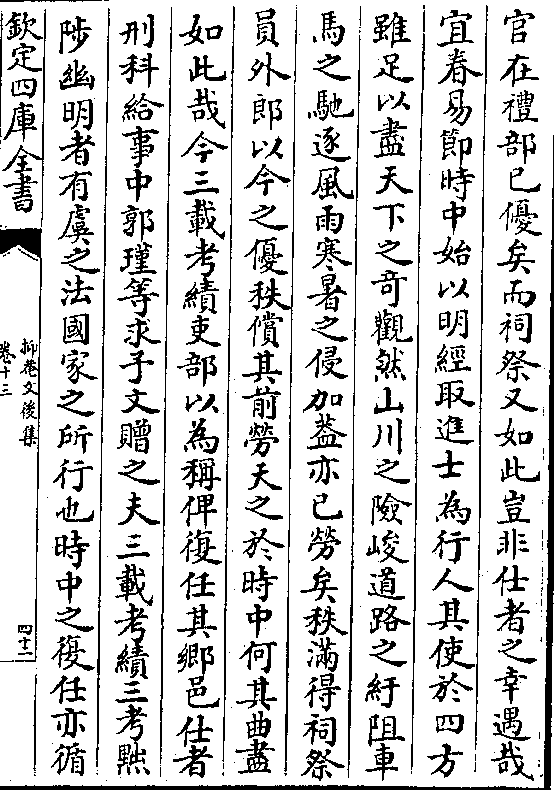 官在禮部已優矣而祠祭又如此豈非仕者之幸遇哉
宜春易節時中始以明經取進士為行人其使於四方
雖足以盡天下之奇觀然山川之險峻道路之紆阻車
馬之馳逐風雨寒暑之侵加葢亦已勞矣秩滿得祠祭
員外郎以今之優秩償其前勞天之於時中何其曲盡
如此哉今三載考績吏部以為稱俾復任其鄉邑仕者
刑科給事中郭瑾等求予文贈之夫三載考績三考黜
陟幽明者有虞之法國家之所行也時中之復任亦循
欽定四庫全書
抑菴文後集
卷十三
四十二